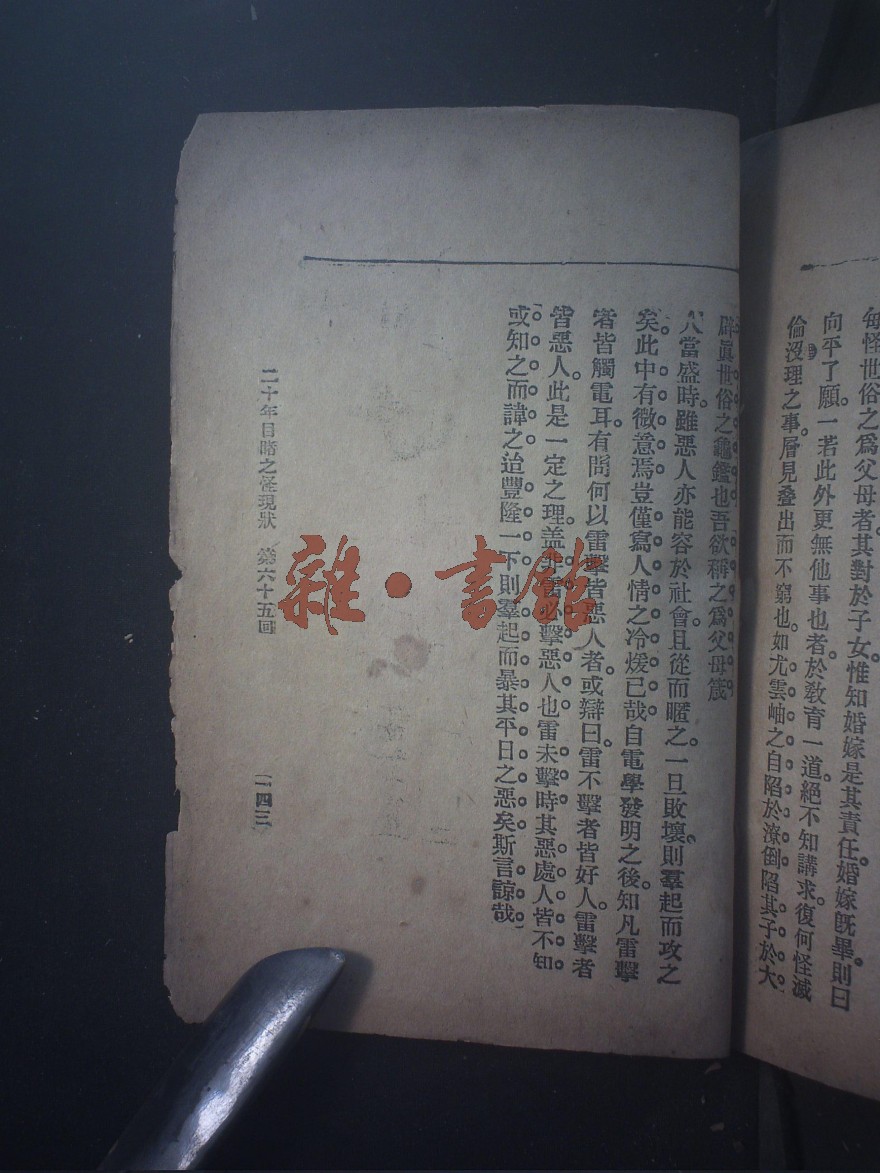 每怪世俗之爲父母者其對於子女惟知婚嫁是其責任婚嫁旣畢則曰
向平了願一若此外更無他事也者於敎育一道絕不知講求復何怪滅
倫沒理之事層見叠出而不窮也如尤雲岫之自陷於潦倒陷其子於大
辟眞世俗之龜鑑也吾欲稱之爲父母箴
人當盛時雖惡人亦能容於社會且從而暱之一旦敗壞則羣起而攻之
矣此中有微意焉豈僅寫人情之冷煖已哉自電學發明之後知凡雷擊
者皆觸電耳有問何以雷擊皆惡人者或辯曰雷不擊者皆好人雷擊者
皆惡人此是一定之理蓋非雷必擊惡人也雷未擊時其惡處人皆不知
或知之而諱之迨豐隆一下則羣起而暴其平日之惡矣斯言諒哉
二十年目睹之怪現狀 第六十五回
一四三
雜·書館